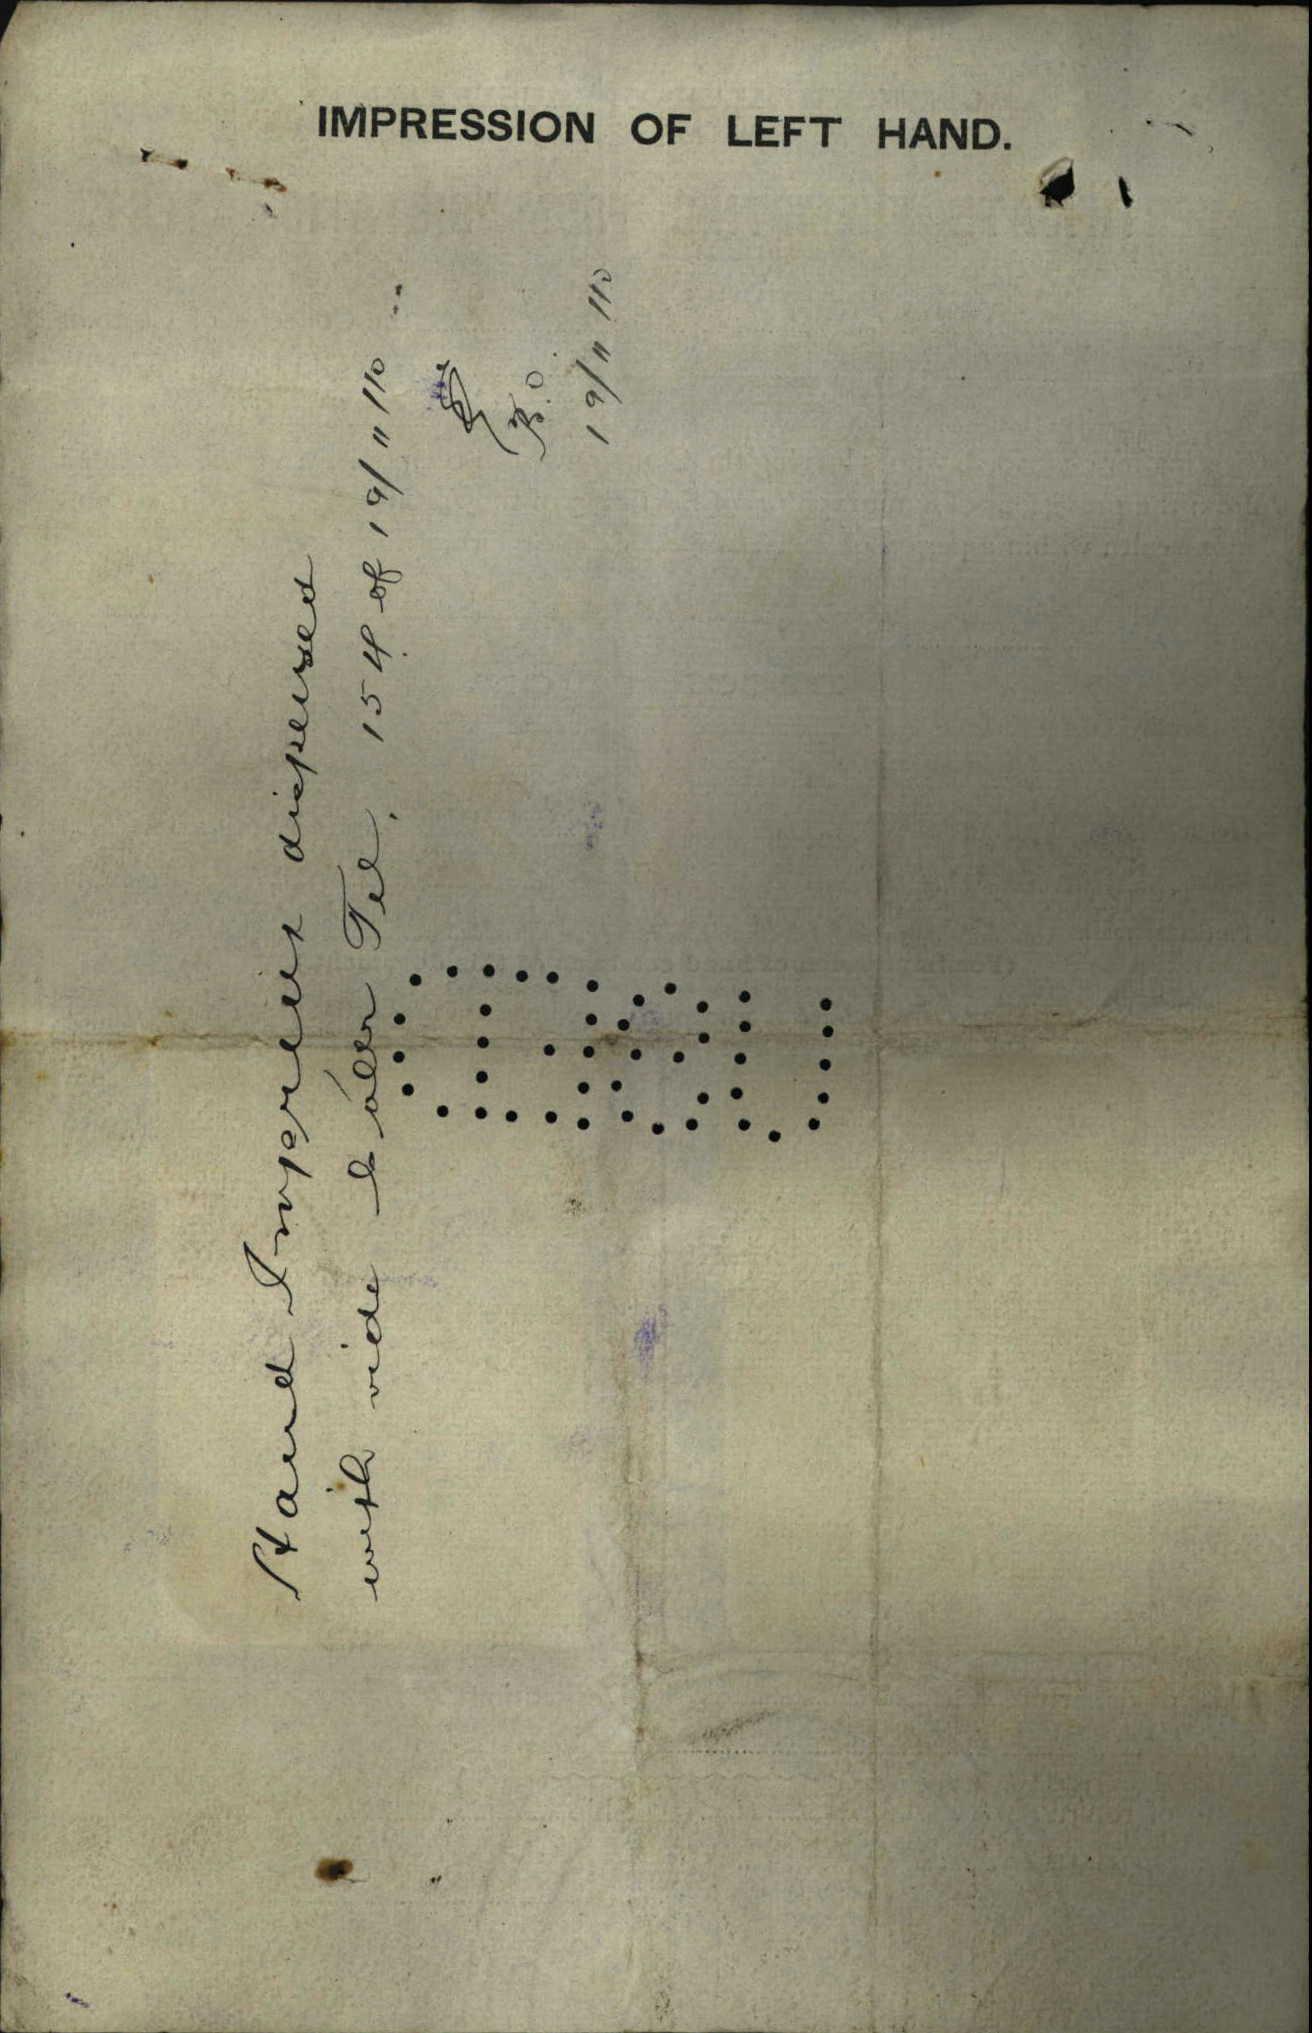 IMPRESSION OF LEFT HAND.
Hand Impress dispensed
with vide Tel. 154 of 19/11/10
19/11/10